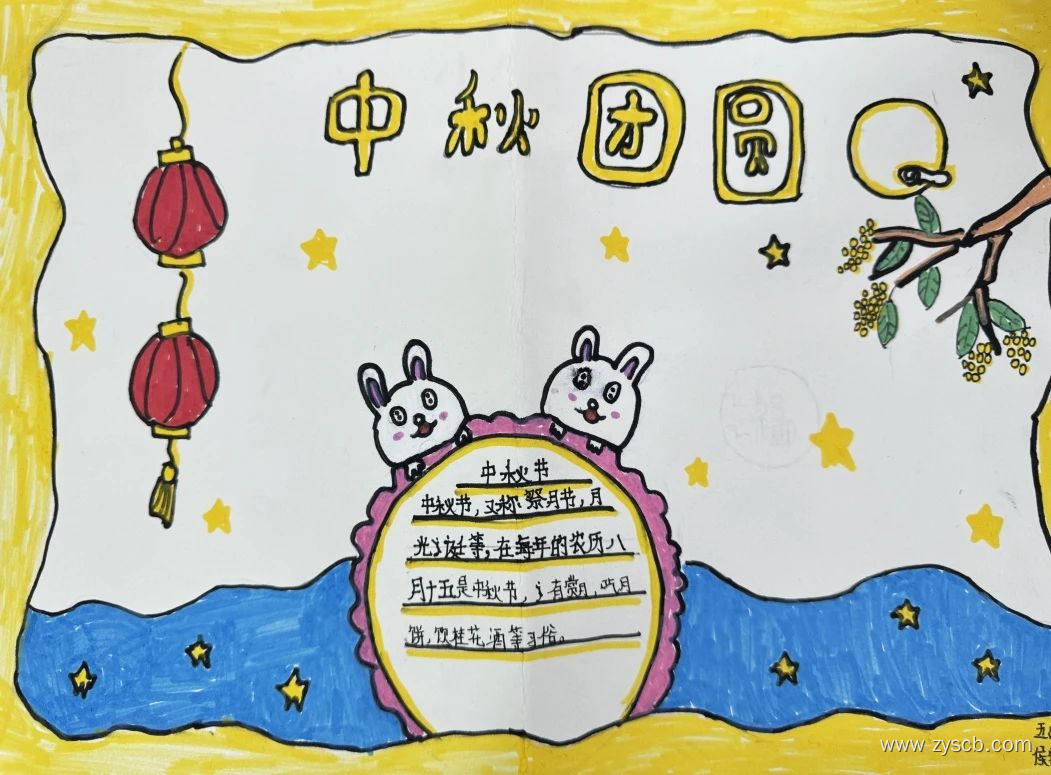 中秋团圆
中秋节
中秋节,又称祭月节,月
光诞等,在每年的农历八
月十五是中秋节,有赏月,吃月
饼,饮桂花酒等习俗。
www.zyscb.com
五
侯